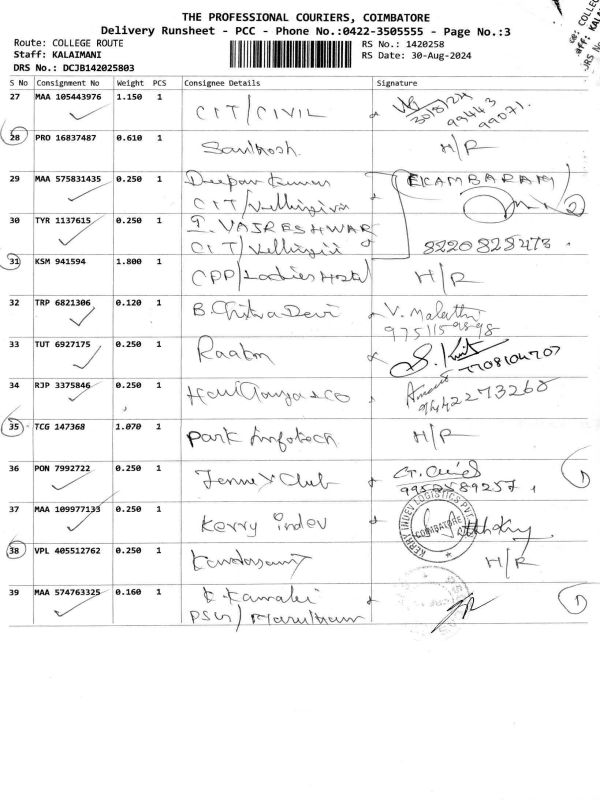 THE PROFESSIONAL COURIERS, COIMBATORE
Delivery Runsheet - PCC - Phone No.:0422-3505555 - Page No.:3
Route: COLLEGE ROUTE
Staff: KALAIMANI
DRS No.: DCJB142025803
RS No.: 1420258
RS Date: 30-Aug-2024
S No Consignment No Weight PCS Consignee Details Signature
27 MAA 105443976 1.150 1 CIT/CIVIL 30/8/24
99443
99071
28 PRO 16837487 0.610 1 Santhosh H/R
29 MAA 575831435 0.250 1 Deepan Kumar EKAMBARAM
CIT/
30 TYR 1137615 0.250 1 I. VAJRESHWAR
CIT/ 8220828473
31 KSM 941594 1.800 1 CPP/Ladies Hostel H/R
32 TRP 6821306 0.120 1 B. Chitra Devi V. Malathi
9751159898
33 TUT 6927175 0.250 1 7708104707
34 RJP 3375846 0.250 1 9442273268
35 TCG 147368 1.070 1 Park Infotech H/R
36 PON 7992722 0.250 1 Club
9952589257
37 MAA 109977133 0.250 1 Kerry indev
KERRY INDEV LOGISTICS PVT.
COIMBATORE
38 VPL 405512762 0.250 1 H/R
39 MAA 574763325 0.160 1 K. Kamalei
PSG/